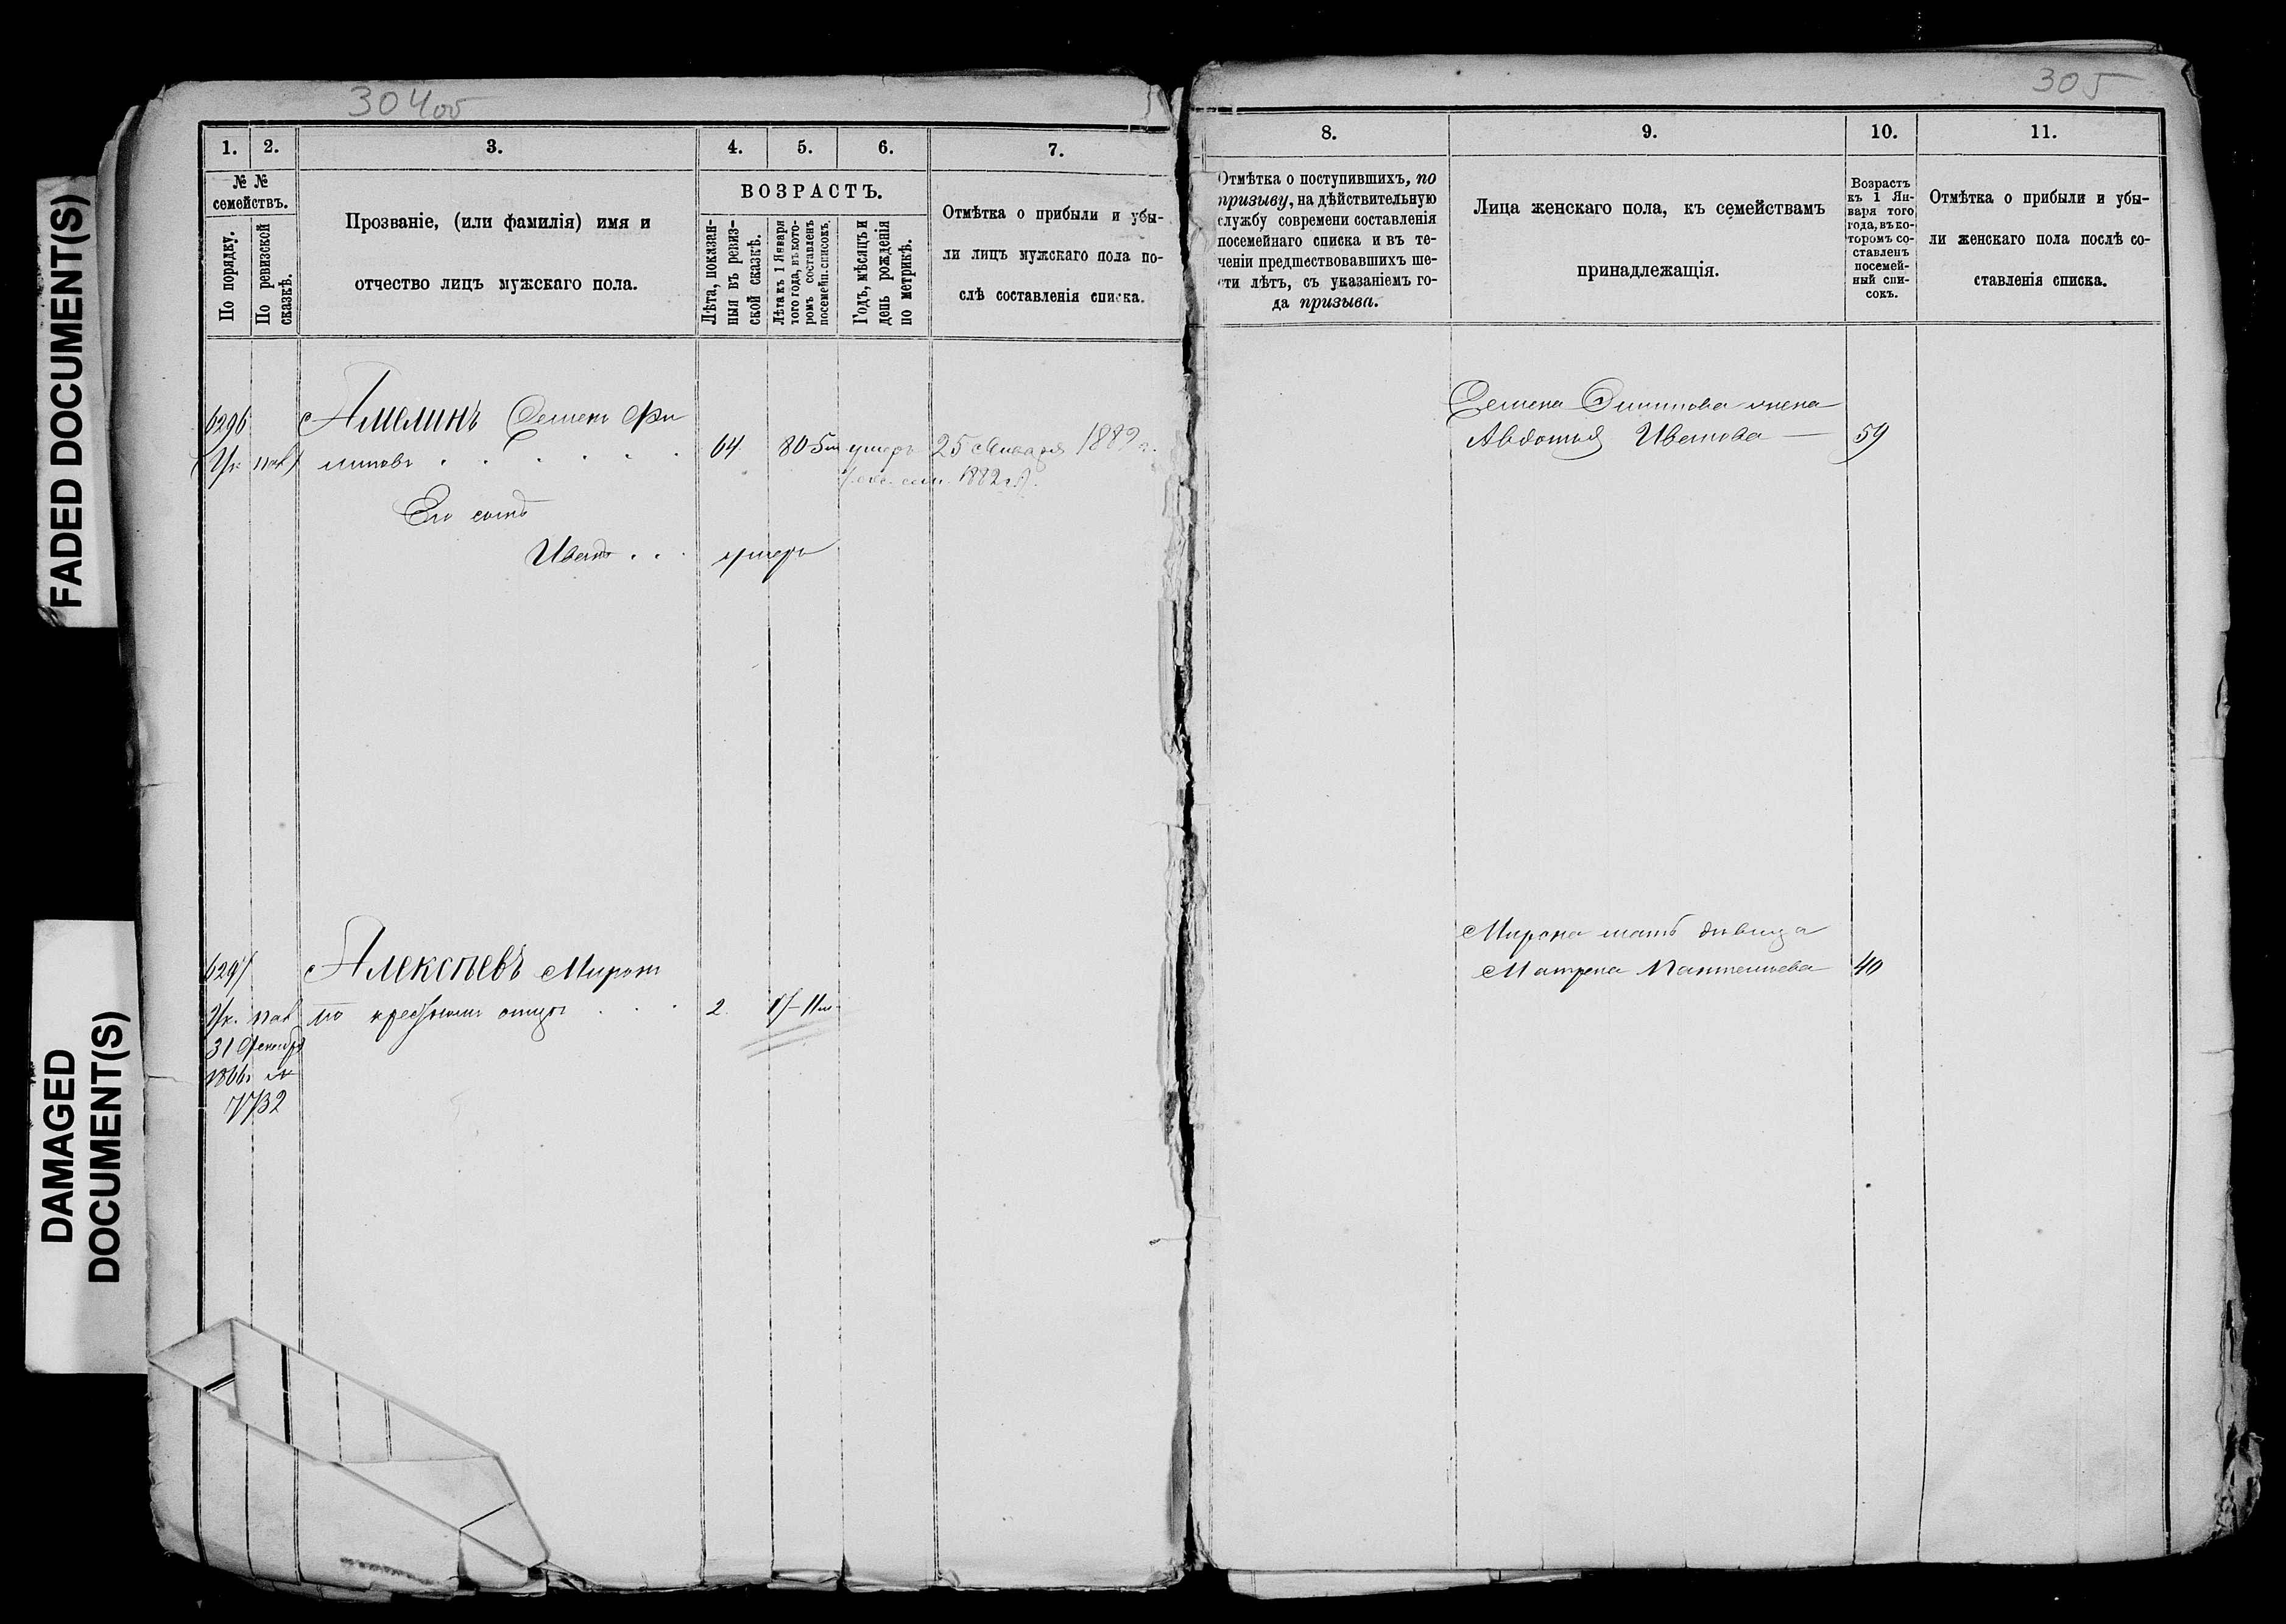 FADED DOCUMENT(S)
DAMAGED
DOCUMENT(S)
304об
1.
2.
3.
4.
5.
6.
7.
№ №
семействъ.
По порядку.
По ревизской
сказкѣ.
Прозваніе, (или фамилія) имя и
отчество лицъ мужскаго пола.
ВОЗРАСТЪ.
Лѣта, показан-
ныя въ ревиз-
ской сказкѣ.
Лѣта къ 1 Января
того года, въ кото-
ромъ составленъ
посемейн. списокъ.
Годъ, мѣсяцъ и
день рожденія
по метрикѣ.
Отмѣтка о прибыли и убы-
ли лицъ мужскаго пола по-
слѣ составленія списка.
6296
Амелинъ Семенъ Фи
64 80-5м умеръ 25 Января 1889 г.
1882 г.
Его сынъ
Иванъ . . . умеръ
6297
Алексѣевъ Миронъ
по крестному отцу . . . 2. 17-11м
31 Декабря
1866 №
7732
305
8.
9.
10.
11.
Отмѣтка о поступившихъ, по
призыву, на дѣйствительную
службу современи составленія
посемейнаго списка и въ те-
ченіи предшествовавшихъ ше-
сти лѣтъ, съ указаніемъ го-
да призыва.
Лица женскаго пола, къ семействамъ
принадлежащія.
Возрастъ
къ 1 Ян-
варя того
года, въ ко-
торомъ со-
ставленъ
посемей-
ный спи-
сокъ.
Отмѣтка о прибыли и убы-
ли женскаго пола послѣ со-
ставленія списка.
Семена жена
Авдотья Иванова — 59
Мирона мать дѣвица
Матрена Пантелѣева 40